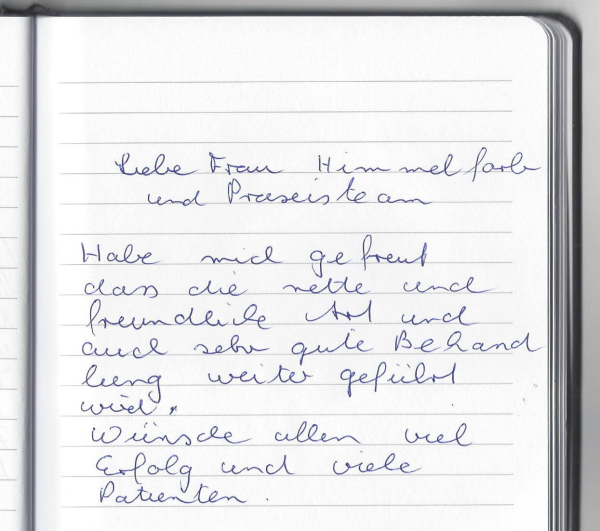 Liebe Frau Himmelfarb
und Praxisteam
Habe mich gefreut
dass die nette und
freundliche Art und
auch sehr gute Behand
lung weiter geführt
wird.
Wünsche allen viel
Erfolg und viele
Patienten.